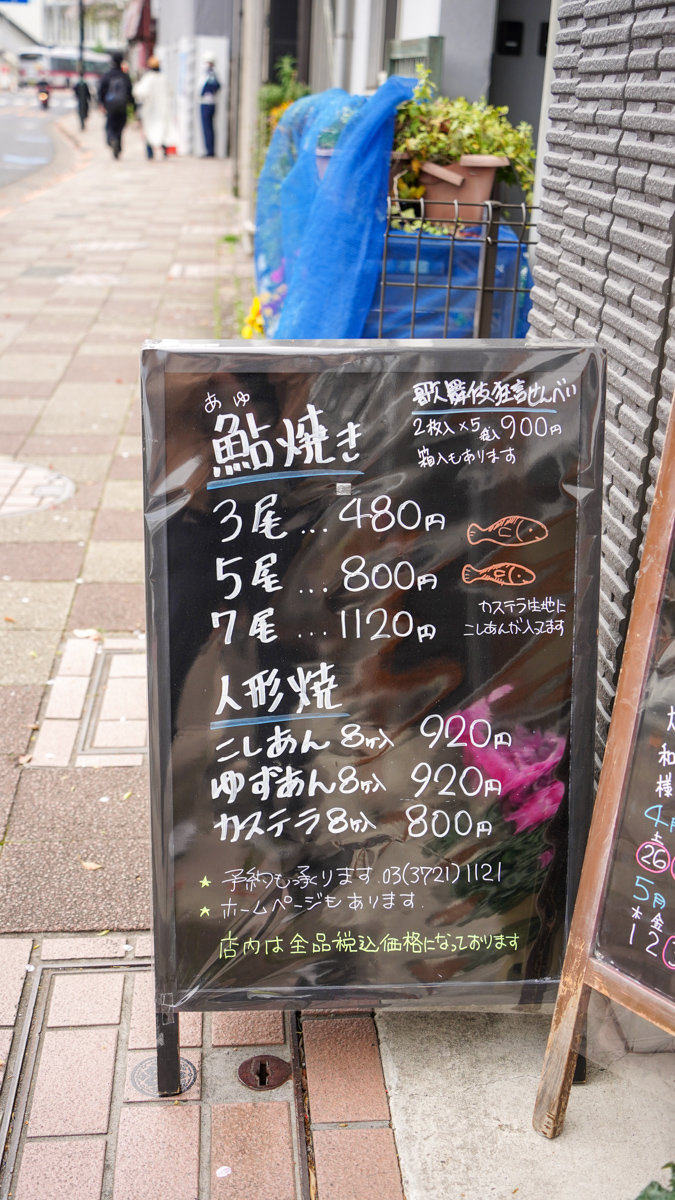 あゆ
鮎焼き
3尾…480円
5尾…800円
7尾…1120円
歌舞伎狂言せんべい
2枚入×5袋入900円
箱入もあります
カステラ生地に
こしあんが入ってます
人形焼
こしあん8ヶ入 920円
ゆずあん8ヶ入 920円
カステラ8ヶ入 800円
★予約も承ります.03(3721)1121
★ホームページもあります.
店内は全品税込価格になっております
和
様
4月
土
26
5月
木 金
1 2